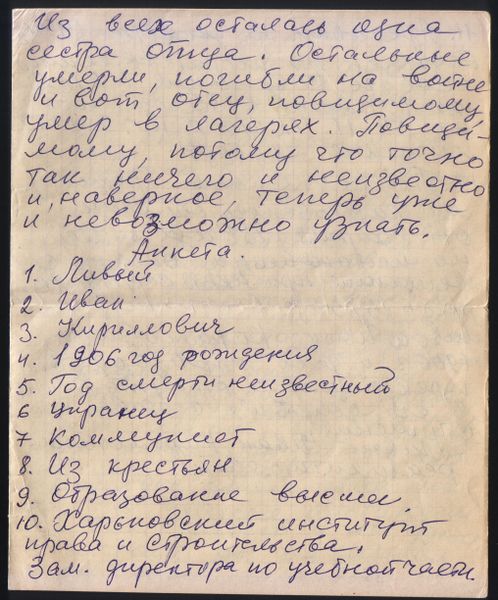 Из всех осталась одна
сестра отца. Остальные
умерли, погибли на войне
и вот отец, повидимому
умер в лагерях. Повиди-
мому, потому что точно
так ничего и неизвестно
и, наверное, теперь уже
и невозможно узнать.
Анкета.
1. Ливый
2. Иван
3. Кириллович
4. 1906 год рождения
5. Год смерти неизвестный
6 украинец
7 Коммунист
8. Из крестьян
9. Образование высшее.
10. Харьковский институт
права и строительства.
Зам. директора по учебной части.